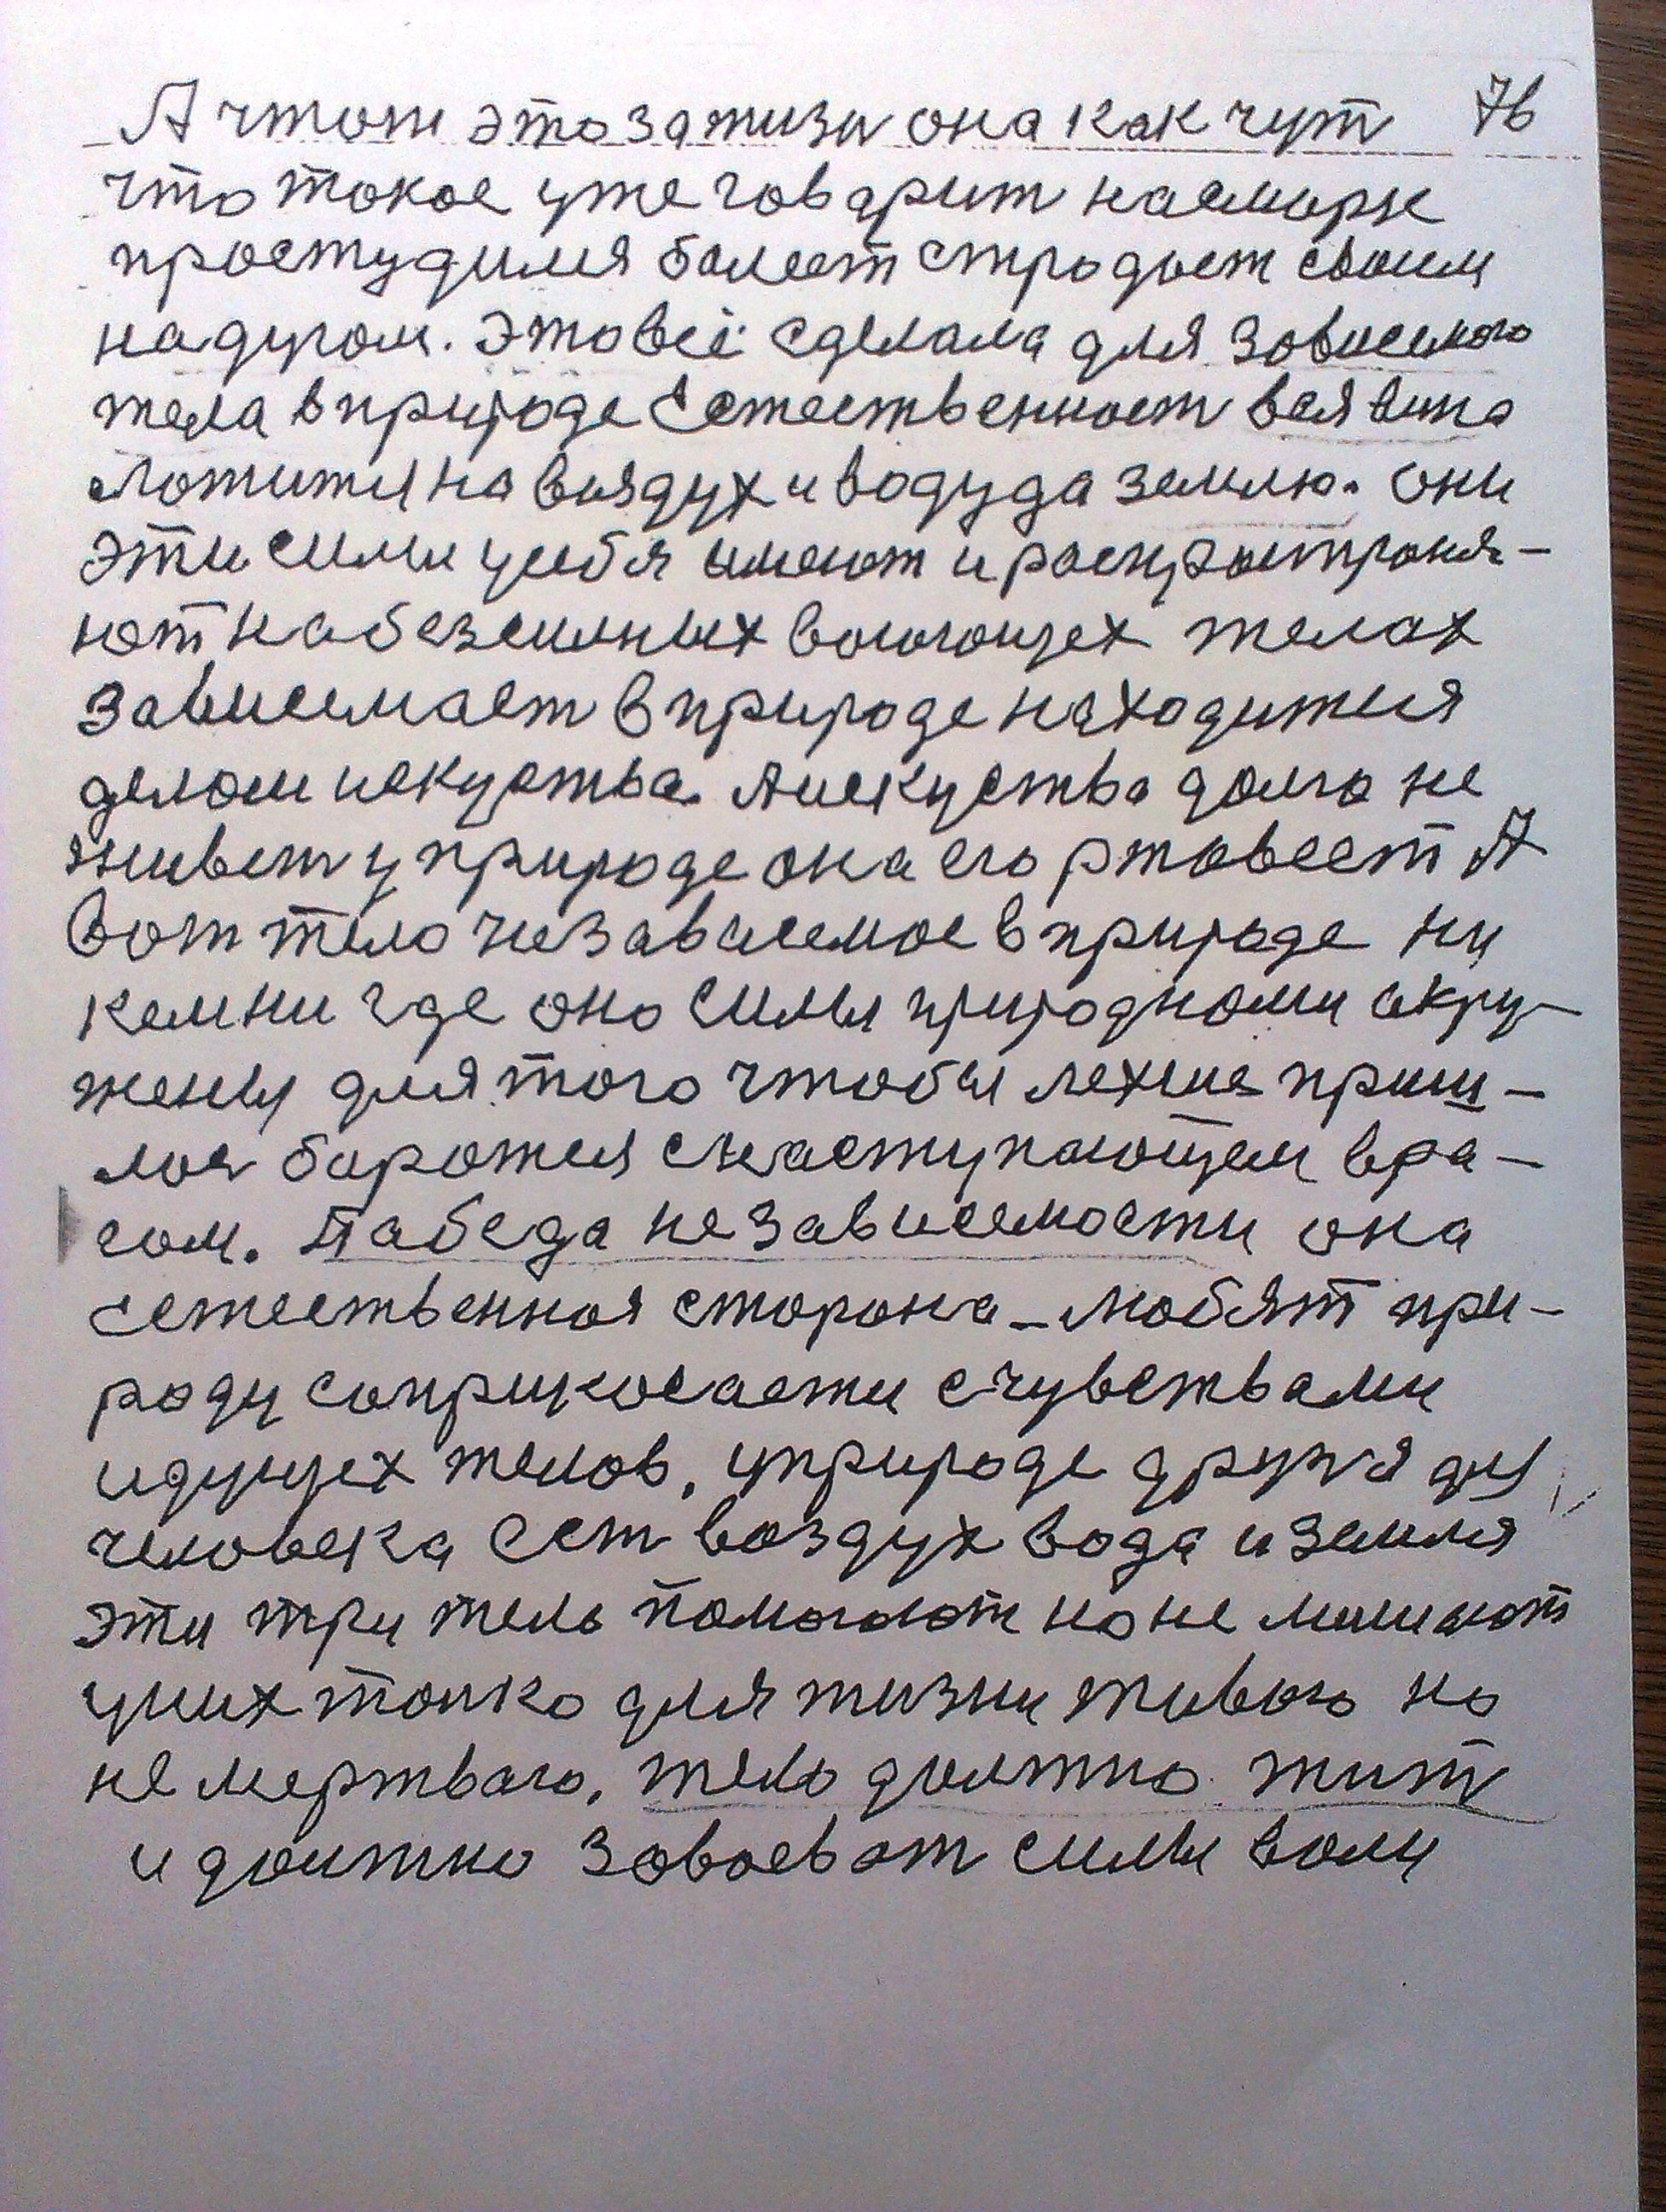 А чтож это за жизн она как чут 76
что токое уже говарит насморк
простудился балеет стродает своим
надугом. Это всё сделала для зовисемого
тела в природе Естественност вся вина
ложится на воздух и воду да землю. они
эти силы у себя имеют и роспространя-
ют на безсильных воюющех телах
Зависемаст в природе находится
делом искуства. А искуства долго не
живет у природе она его ржавеет А
вот тело незавасемое в природе ни
кем ни где оно силы природноми окру-
жены для того чтобы лехше приш-
лос боротся снаступающем вра-
гом. Пабеда независемости она
Естественная сторона - любят при-
роду соприкосаети счувствами
идущех телов. у природе друзья для
человека Ест воздух вода и земля
эти три тела помогают но не мишают
у них толко для жизни живого но
не мертваго. тело должно жит
и должно зовоеват силы воли